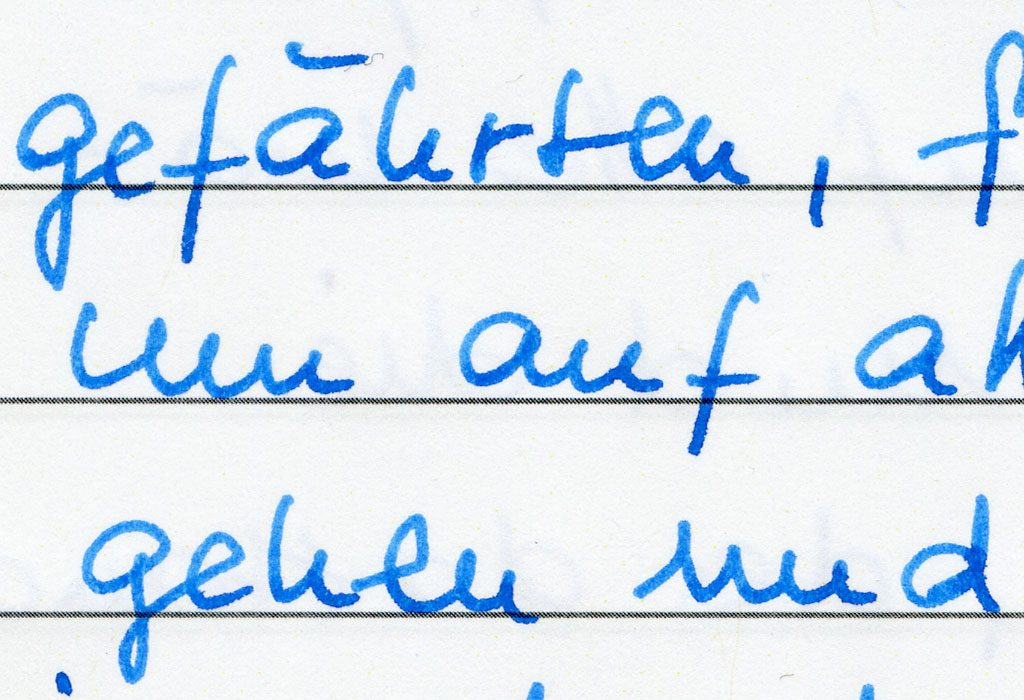 gefährten, f
um auf ah
gehen und